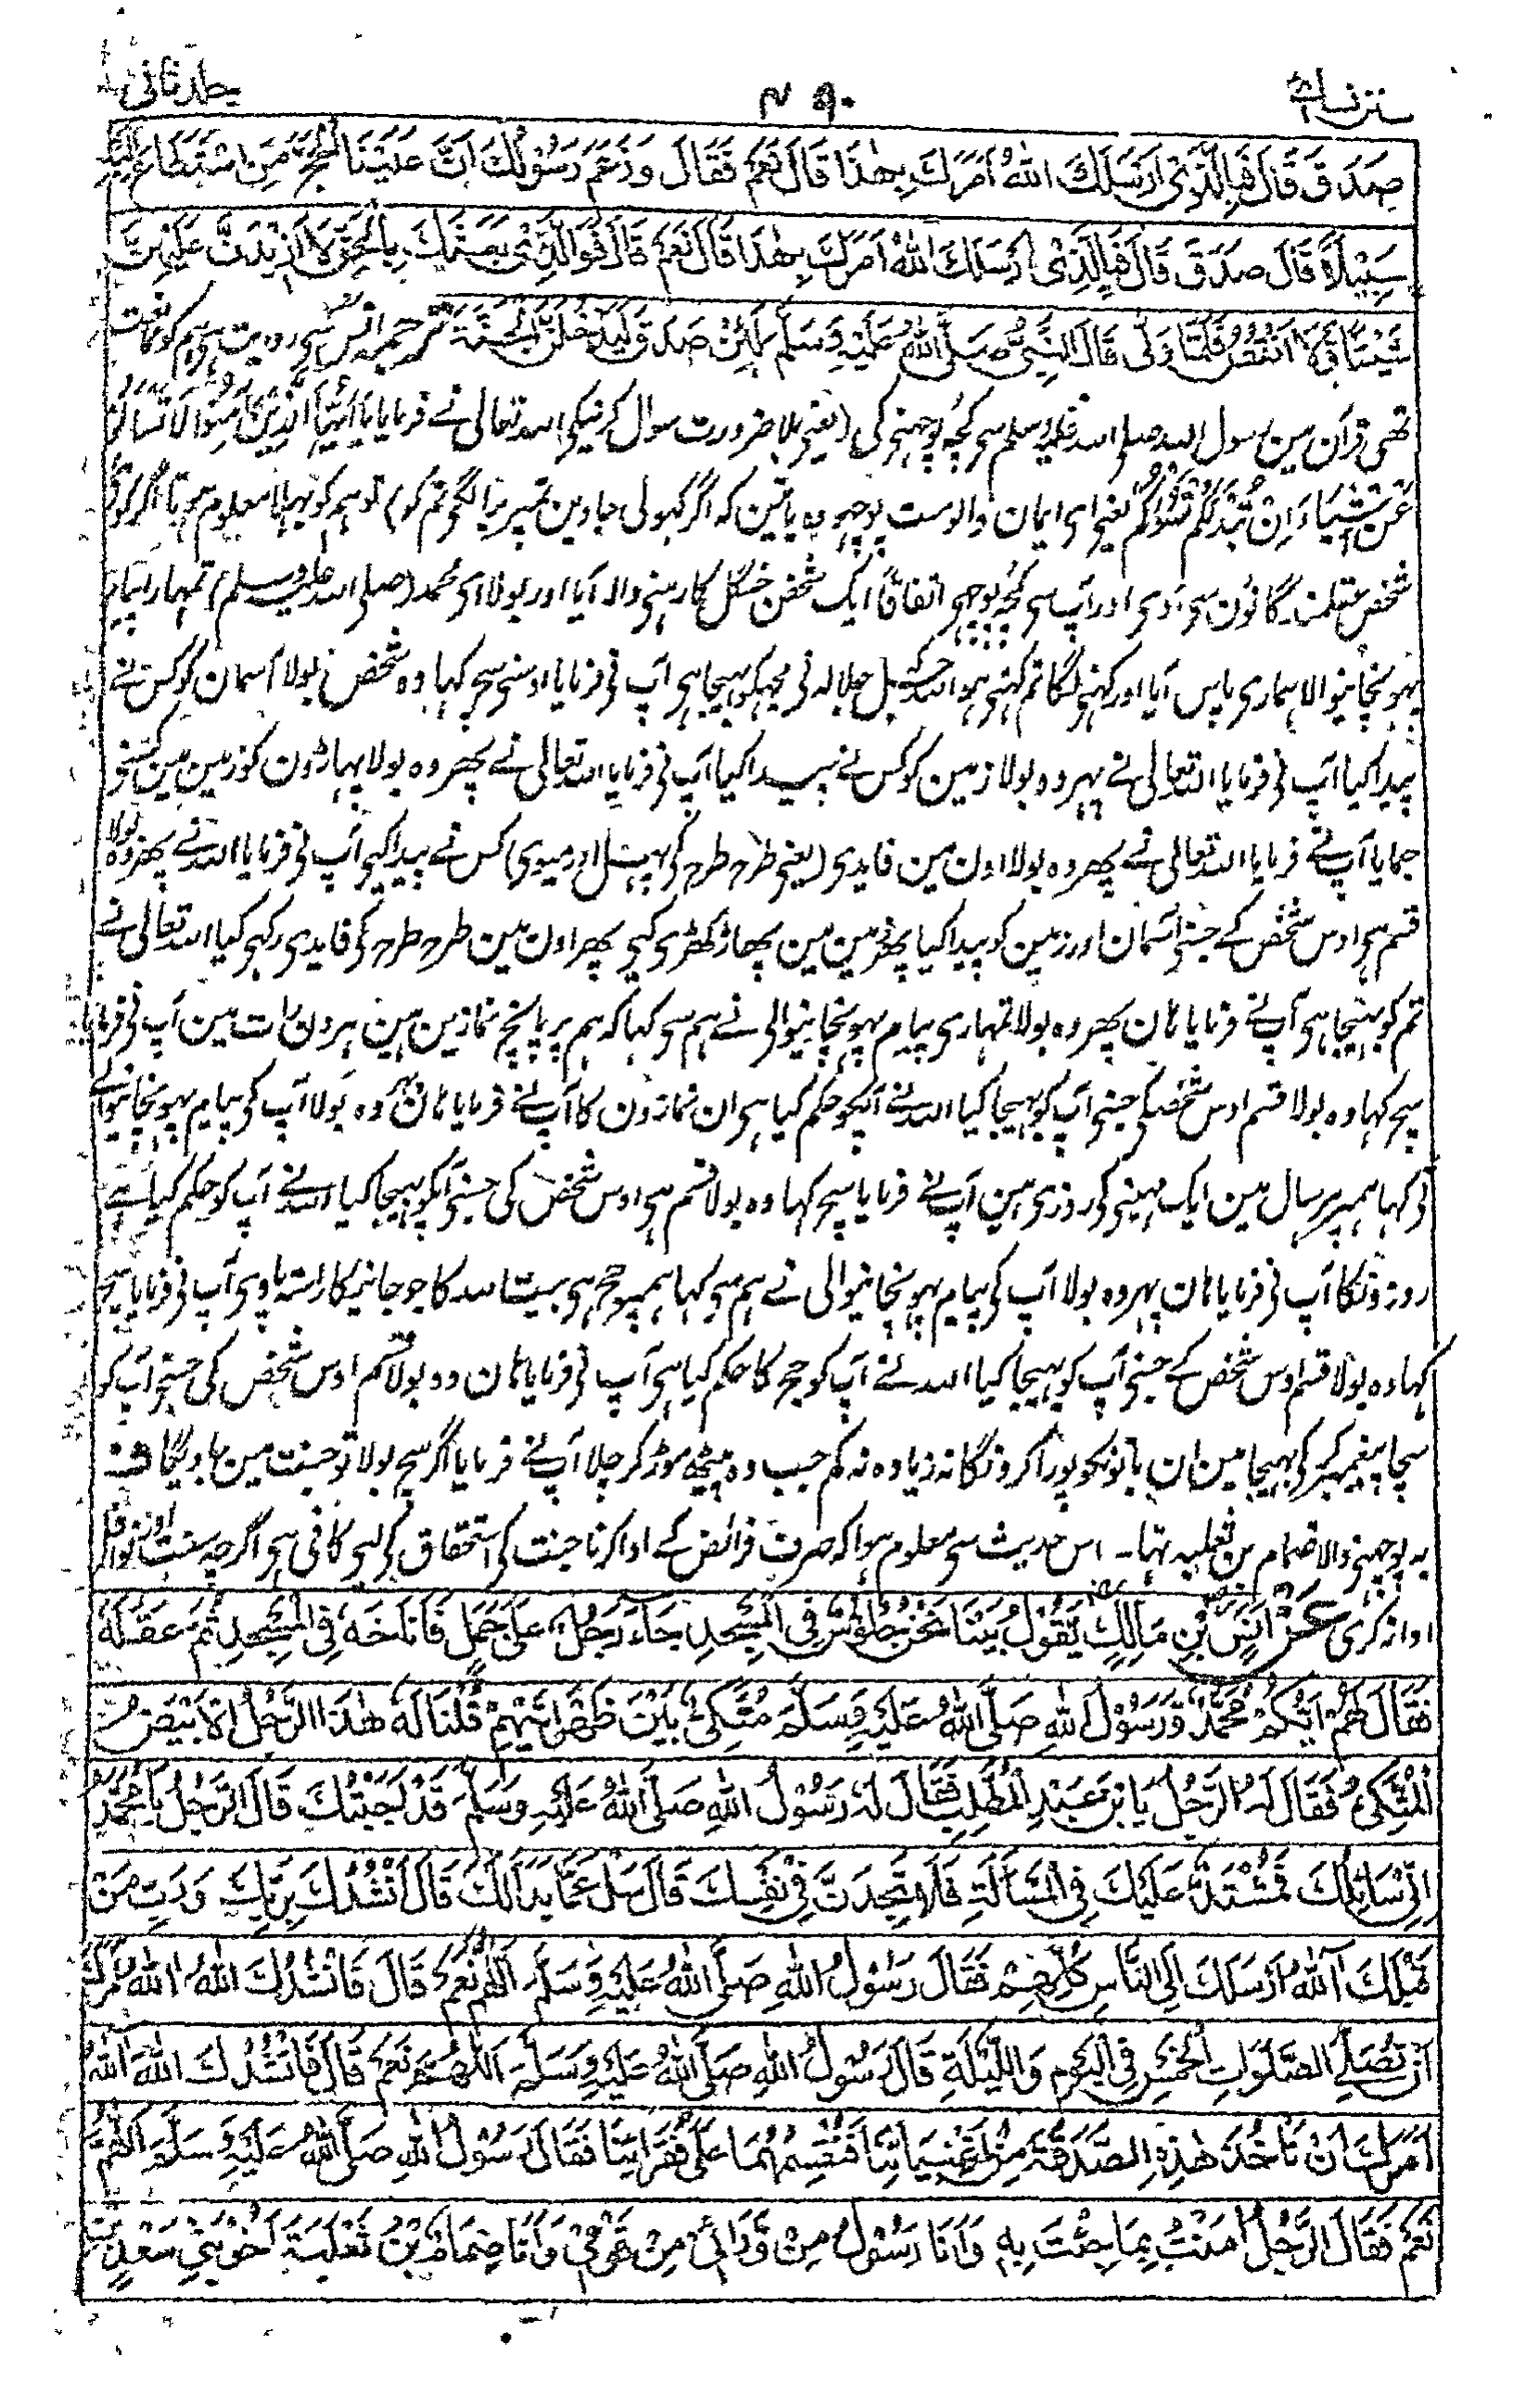 سنن نسائی ۴۹۰ جلد ثانی
صَدَقَ قَالَ فَبِالَّذِیْ اَرْسَلَكَ اللّٰهُ اَمَرَكَ بِهٰذَا قَالَ نَعَمْ فَقَالَ وَزَعَمَ رَسُوْلُكَ اَنَّ عَلَيْنَا الْحَجَّ مَنِ اسْتَطَاعَ اِلَيْهِ
سَبِيْلًا قَالَ صَدَقَ قَالَ فَبِالَّذِیْ اَرْسَلَكَ اللّٰهُ اَمَرَكَ بِهٰذَا قَالَ نَعَمْ قَالَ فَوَالَّذِیْ بَعَثَكَ بِالْحَقِّ لَا اَزِيْدَنَّ عَلَيْهِنَّ
شَيْئًا وَّلَا اَنْقُصُ فَلَمَّا وَلّٰی قَالَ النَّبِیُّ صَلَّی اللّٰهُ عَلَيْهِ وَسَلَّمَ لَئِنْ صَدَقَ لَيَدْخُلَنَّ الْجَنَّةَ ترجمہ انس سی روایت ہی ہم کو ممانعت
تھی قرآن مین رسول اللہ صلی اللہ علیہ وسلم سی کچھ پوچھنی کی (یعنی بلا ضرورت سوال کرنیکی اللہ تعالی نے فرمایا یا اَیُّہَا الَّذِیْنَ اٰمَنُوا لَا تَسْاَلُوْا
عَنْ اَشْیَاءَ اِنْ تُبْدَ لَکُمْ تَسُؤْکُمْ یعنی ای ایمان والو مت پوچھو وہ باتین کہ اگر کہولی جاوین تمپر برا لگی تم کو) تو ہم کو بہلا معلوم ہوتا اگر کوئی
شخص عقلمند گانون سی آوی اور آپ سی کچھ پوچہی اتفاقاً ایک شخص جنگل کا رہنی والا آیا اور بولا ای محمد (صلی اللہ علیہ وسلم) تمہارا پیام
پہونچانیوالا ہماری پاس آیا اور کہنی لگا تم کہتی ہو اللہ جل جلالہ نی مجہکو بہیجا ہی آپ نی فرمایا اوسنی سچ کہا وہ شخص بولا آسمان کو کس نے
پیدا کیا آپ نی فرمایا اللہ تعالی نے پہر وہ بولا زمین کو کس نے پیدا کیا آپ نی فرمایا اللہ تعالی نے پھر وہ بولا پہاڑون کو زمین مین کسنی
جمایا آپ نے فرمایا اللہ تعالی نے پھر وہ بولا اون مین فایدی (یعنی طرح طرح کی پہل اور میوی) کس نے پیدا کیی آپ نی فرمایا اللہ نے پھر وہ بولا
قسم ہی اوس شخص کے جسنی آسمان اور زمین کو پیدا کیا پھر زمین مین پھاڑ کھڑی کیی پھر اون مین طرح طرح کی فایدی رکہی کیا اللہ تعالی نے
تم کو بہیجا ہی آپ نے فرمایا ہان پھر وہ بولا تمہاری پیام پہونچانیوالی نے ہم سی کہا کہ ہم پر پانچ نمازین ہین ہر دن رات مین آپ نی فرمایا
سچ کہا وہ بولا قسم اوس شخصکی جسنی آپ کو بہیجا کیا اللہ نے آپکو حکم کیا ہی ان نمازون کا آپ نے فرمایا ہان پھر وہ بولا آپ کی پیام پہونچانیوالے
نی کہا ہمپر ہر سال مین ایک مہینی کی روزی ہین آپ نے فرمایا سچ کہا وہ بولا قسم ہی اوس شخص کی جسنی آپکو بہیجا کیا اللہ نے آپ کو حکم کیا ہے
روزونکا آپ نی فرمایا ہان پہر وہ بولا آپ کی پیام پہونچانیوالی نے ہم سی کہا ہمپر حج ہی بیت اللہ کا جو جانیکا راستہ پاوی آپ نی فرمایا سچ
کہا وہ بولا قسم اوس شخص کے جسنی آپ کو بہیجا کیا اللہ نے آپ کو حج کا حکم کیا ہی آپ نی فرمایا ہان وہ بولا قسم اوس شخص کی جسنی آپ کو
سچا پیغمبر کرکے بہیجا مین ان باتونکو پورا کرونگا نہ زیادہ نہ کم جب وہ پیٹھ موڑ کر چلا آپ نے فرمایا اگر سچ بولا تو جنت مین جاویگا ف
یہ پوچہنی والا ضمام بن ثعلبہ تہا۔ اس حدیث سی معلوم ہوا کہ صرف فرائض کے ادا کرنا جنت کی استحقاق کی لیی کافی ہی اگرچہ سنت اور نوافل
ادا نہ کری عَنْ اَنَسِ بْنِ مَالِكٍ يَقُوْلُ بَيْنَا نَحْنُ جُلُوْسٌ فِی الْمَسْجِدِ جَاءَ رَجُلٌ عَلٰی جَمَلٍ فَاَنَاخَهٗ فِی الْمَسْجِدِ ثُمَّ عَقَلَهٗ
فَقَالَ لَهُمْ اَيُّكُمْ مُحَمَّدٌ وَرَسُوْلُ اللّٰهِ صَلَّی اللّٰهُ عَلَيْهِ وَسَلَّمَ مُتَّكِئٌ بَيْنَ ظَهْرَانَيْهِمْ قُلْنَا لَهٗ هٰذَا الرَّجُلُ الْاَبْيَضُ
الْمُتَّكِئُ فَقَالَ لَهُ الرَّجُلُ يَا ابْنَ عَبْدِ الْمُطَّلِبِ فَقَالَ لَهٗ رَسُوْلُ اللّٰهِ صَلَّی اللّٰهُ عَلَيْهِ وَسَلَّمَ قَدْ اَجَبْتُكَ قَالَ الرَّجُلُ يَا مُحَمَّدُ
اِنِّیْ سَائِلُكَ فَمُشْتَدٌّ عَلَيْكَ فِی الْمَسْاَلَةِ فَلَا تَجِدَنَّ فِیْ نَفْسِكَ قَالَ سَلْ عَمَّا بَدَا لَكَ قَالَ اَنْشُدُكَ بِرَبِّكَ وَرَبِّ مَنْ
قَبْلَكَ اٰللّٰهُ اَرْسَلَكَ اِلَی النَّاسِ كُلِّهِمْ فَقَالَ رَسُوْلُ اللّٰهِ صَلَّی اللّٰهُ عَلَيْهِ وَسَلَّمَ اَللّٰهُمَّ نَعَمْ قَالَ فَاَنْشُدُكَ اللّٰهَ اٰللّٰهُ اَمَرَكَ
اَنْ تُصَلِّیَ الصَّلَوَاتِ الْخَمْسَ فِی الْيَوْمِ وَاللَّيْلَةِ قَالَ رَسُوْلُ اللّٰهِ صَلَّی اللّٰهُ عَلَيْهِ وَسَلَّمَ اَللّٰهُمَّ نَعَمْ قَالَ فَاَنْشُدُكَ اللّٰهَ اٰللّٰهُ
اَمَرَكَ اَنْ تَاْخُذَ هٰذِهِ الصَّدَقَةَ مِنْ اَغْنِيَائِنَا فَتَقْسِمَهَا عَلٰی فُقَرَائِنَا فَقَالَ رَسُوْلُ اللّٰهِ صَلَّی اللّٰهُ عَلَيْهِ وَسَلَّمَ اَللّٰهُمَّ
نَعَمْ فَقَالَ الرَّجُلُ اٰمَنْتُ بِمَا جِئْتَ بِهٖ وَاَنَا رَسُوْلُ مَنْ وَّرَائِیْ مِنْ قَوْمِیْ وَاَنَا ضِمَامُ بْنُ ثَعْلَبَةَ اَخُوْ بَنِیْ سَعْدِ بْنِ